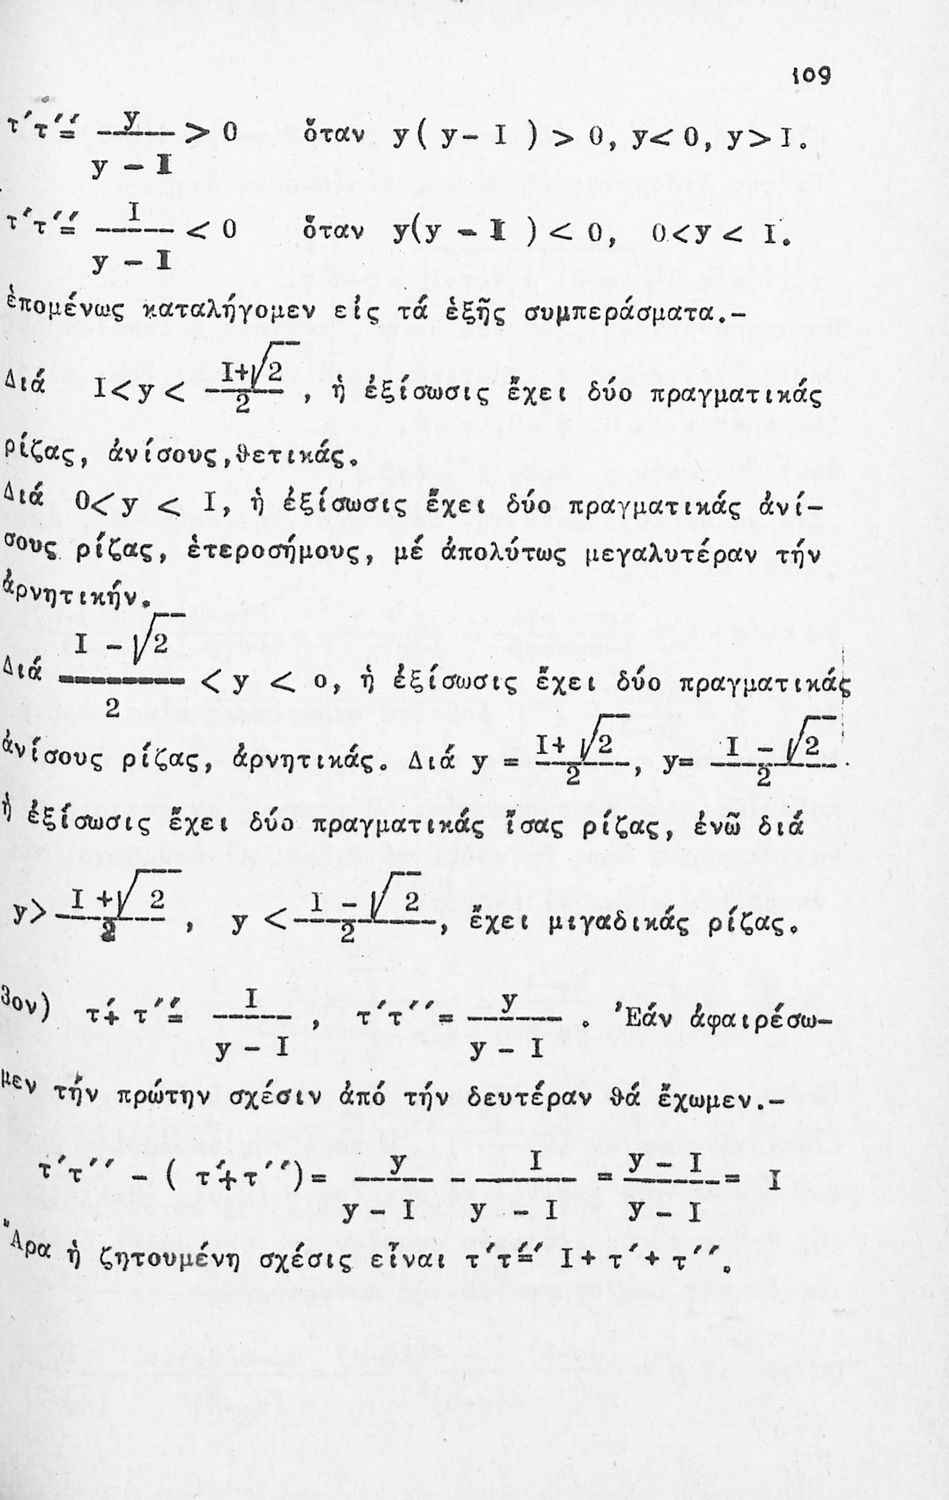 109
τ´τ´´= y / y – I > 0 ὅταν y( y– I ) > 0, y< 0, y> I.
τ´τ´´= I / y – I < 0 ὅταν y(y – I ) < 0, 0<y < I.
ἑπομένως καταλήγομεν εἰς τά ἑξῆς συμπεράσματα.–
Διά I< y < I+√2 / 2 , ἡ ἐξίσωσις ἔχει δύο πραγματικάς
ρίζας, ἀνίσους,θετικάς.
Διά 0< y < I, ἡ ἐξίσωσις ἔχει δύο πραγματικάς ἀνί–
σους ρίζας, ἑτεροσήμους, μέ ἀπολύτως μεγαλυτέραν τήν
ἀρνητικήν.
Διά I – √2 / 2 < y < o, ἡ ἐξίσωσις ἔχει δύο πραγματικάς
ἀνίσους ρίζας, ἀρνητικάς. Διά y = I+ √2 / 2 , y= I – √2 / 2 .
ἡ ἐξίσωσις ἔχει δύο πραγματικάς ἴσας ρίζας, ἐνῶ διά
y> I +√ 2 / 2 , y < I – √ 2 / 2 , ἔχει μιγαδικάς ρίζας.
3ον) τ´+ τ´´= I / y – I , τ´τ´´= y / y – I . Ἐάν ἀφαιρέσω–
μεν τήν πρώτην σχέσιν ἀπό τήν δευτέραν θά ἔχωμεν.–
τ´τ´´ – ( τ´+τ´´)= y / y – I – I / y – I = y – I / y – I = I
Ἄρα ἡ ζητουμένη σχέσις εἶναι τ´τ´´= I+ τ´+ τ´´.